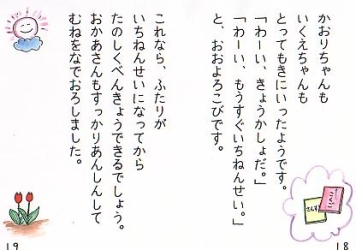 かおりちゃんも
いくえちゃんも
とってもきにいったようです。
「わーい、きょうかしょだ。」
「わーい、もうすぐいちねんせい。」
と、おおよろこびです。
こくご
さんすう
18
これなら、ふたりが
いちねんせいになってから
たのしくべんきょうできるでしょう。
おかあさんもすっかりあんしんして
むねをなでおろしました。
19